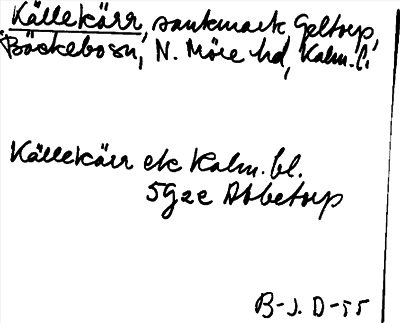 Källekärr, sankmark, Geltorp,
Bäckebosn, N. Möre hd, Kalm. l.
Källekärr ek Kalm. bl.
5G2e Abbetorp
B-J. D-55